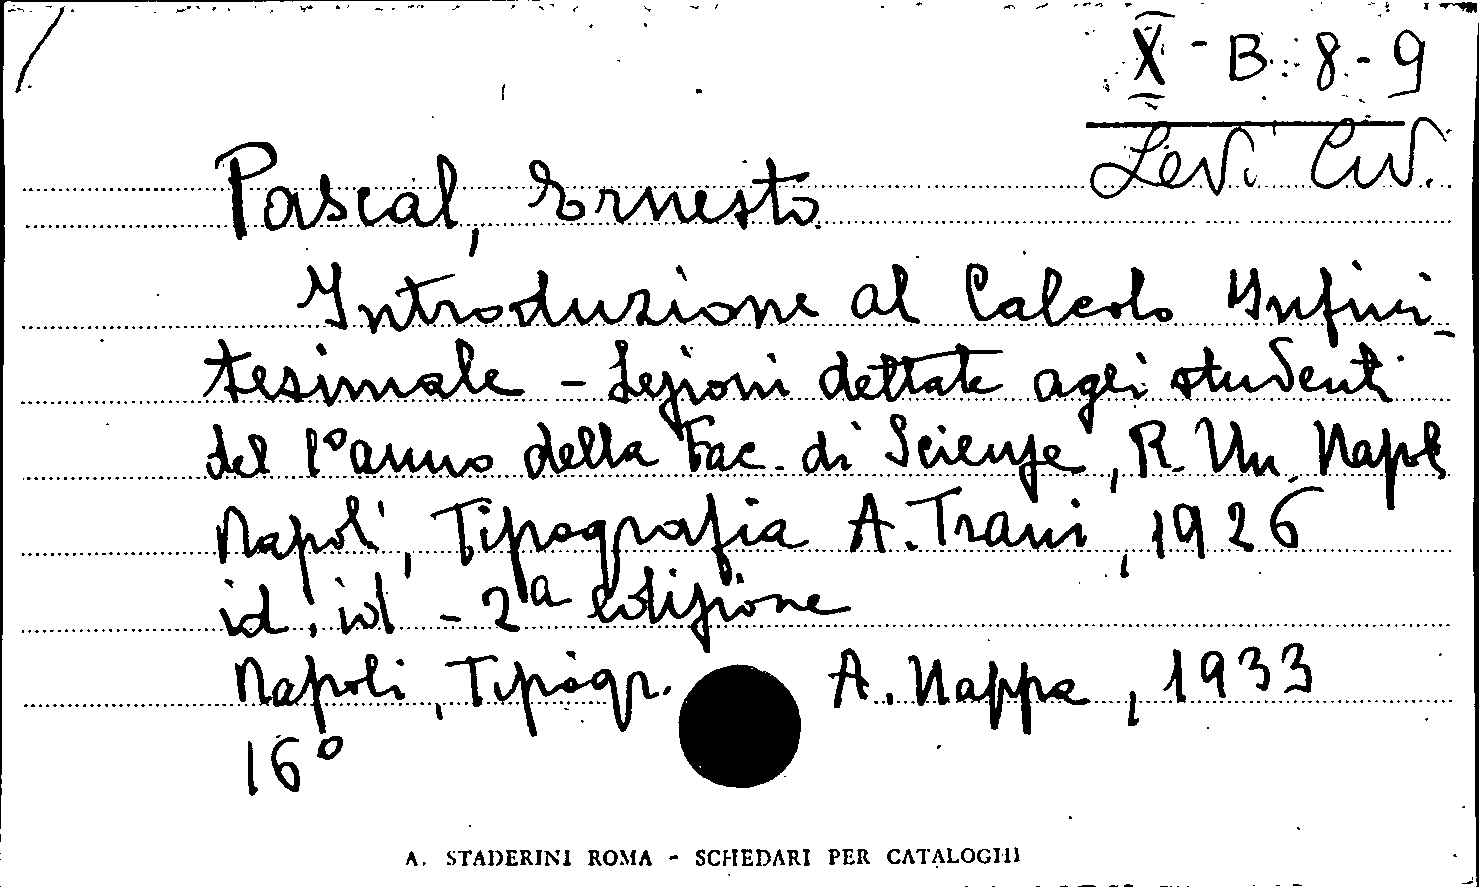 X - B. 8 - 9
Levi Civ.
Pascal, Ernesto
Introduzione al Calcolo Infini-
tesimale - Lezioni dettate agli studenti
del 1° anno della Fac. di Scienze, R. Un. Napoli
Napoli, Tipografia A. Trani, 1926
id. id - 2a edizione
Napoli, Tipogr. A. Nappa, 1933
16°
A. STADERINI ROMA - SCHEDARI PER CATALOGHI